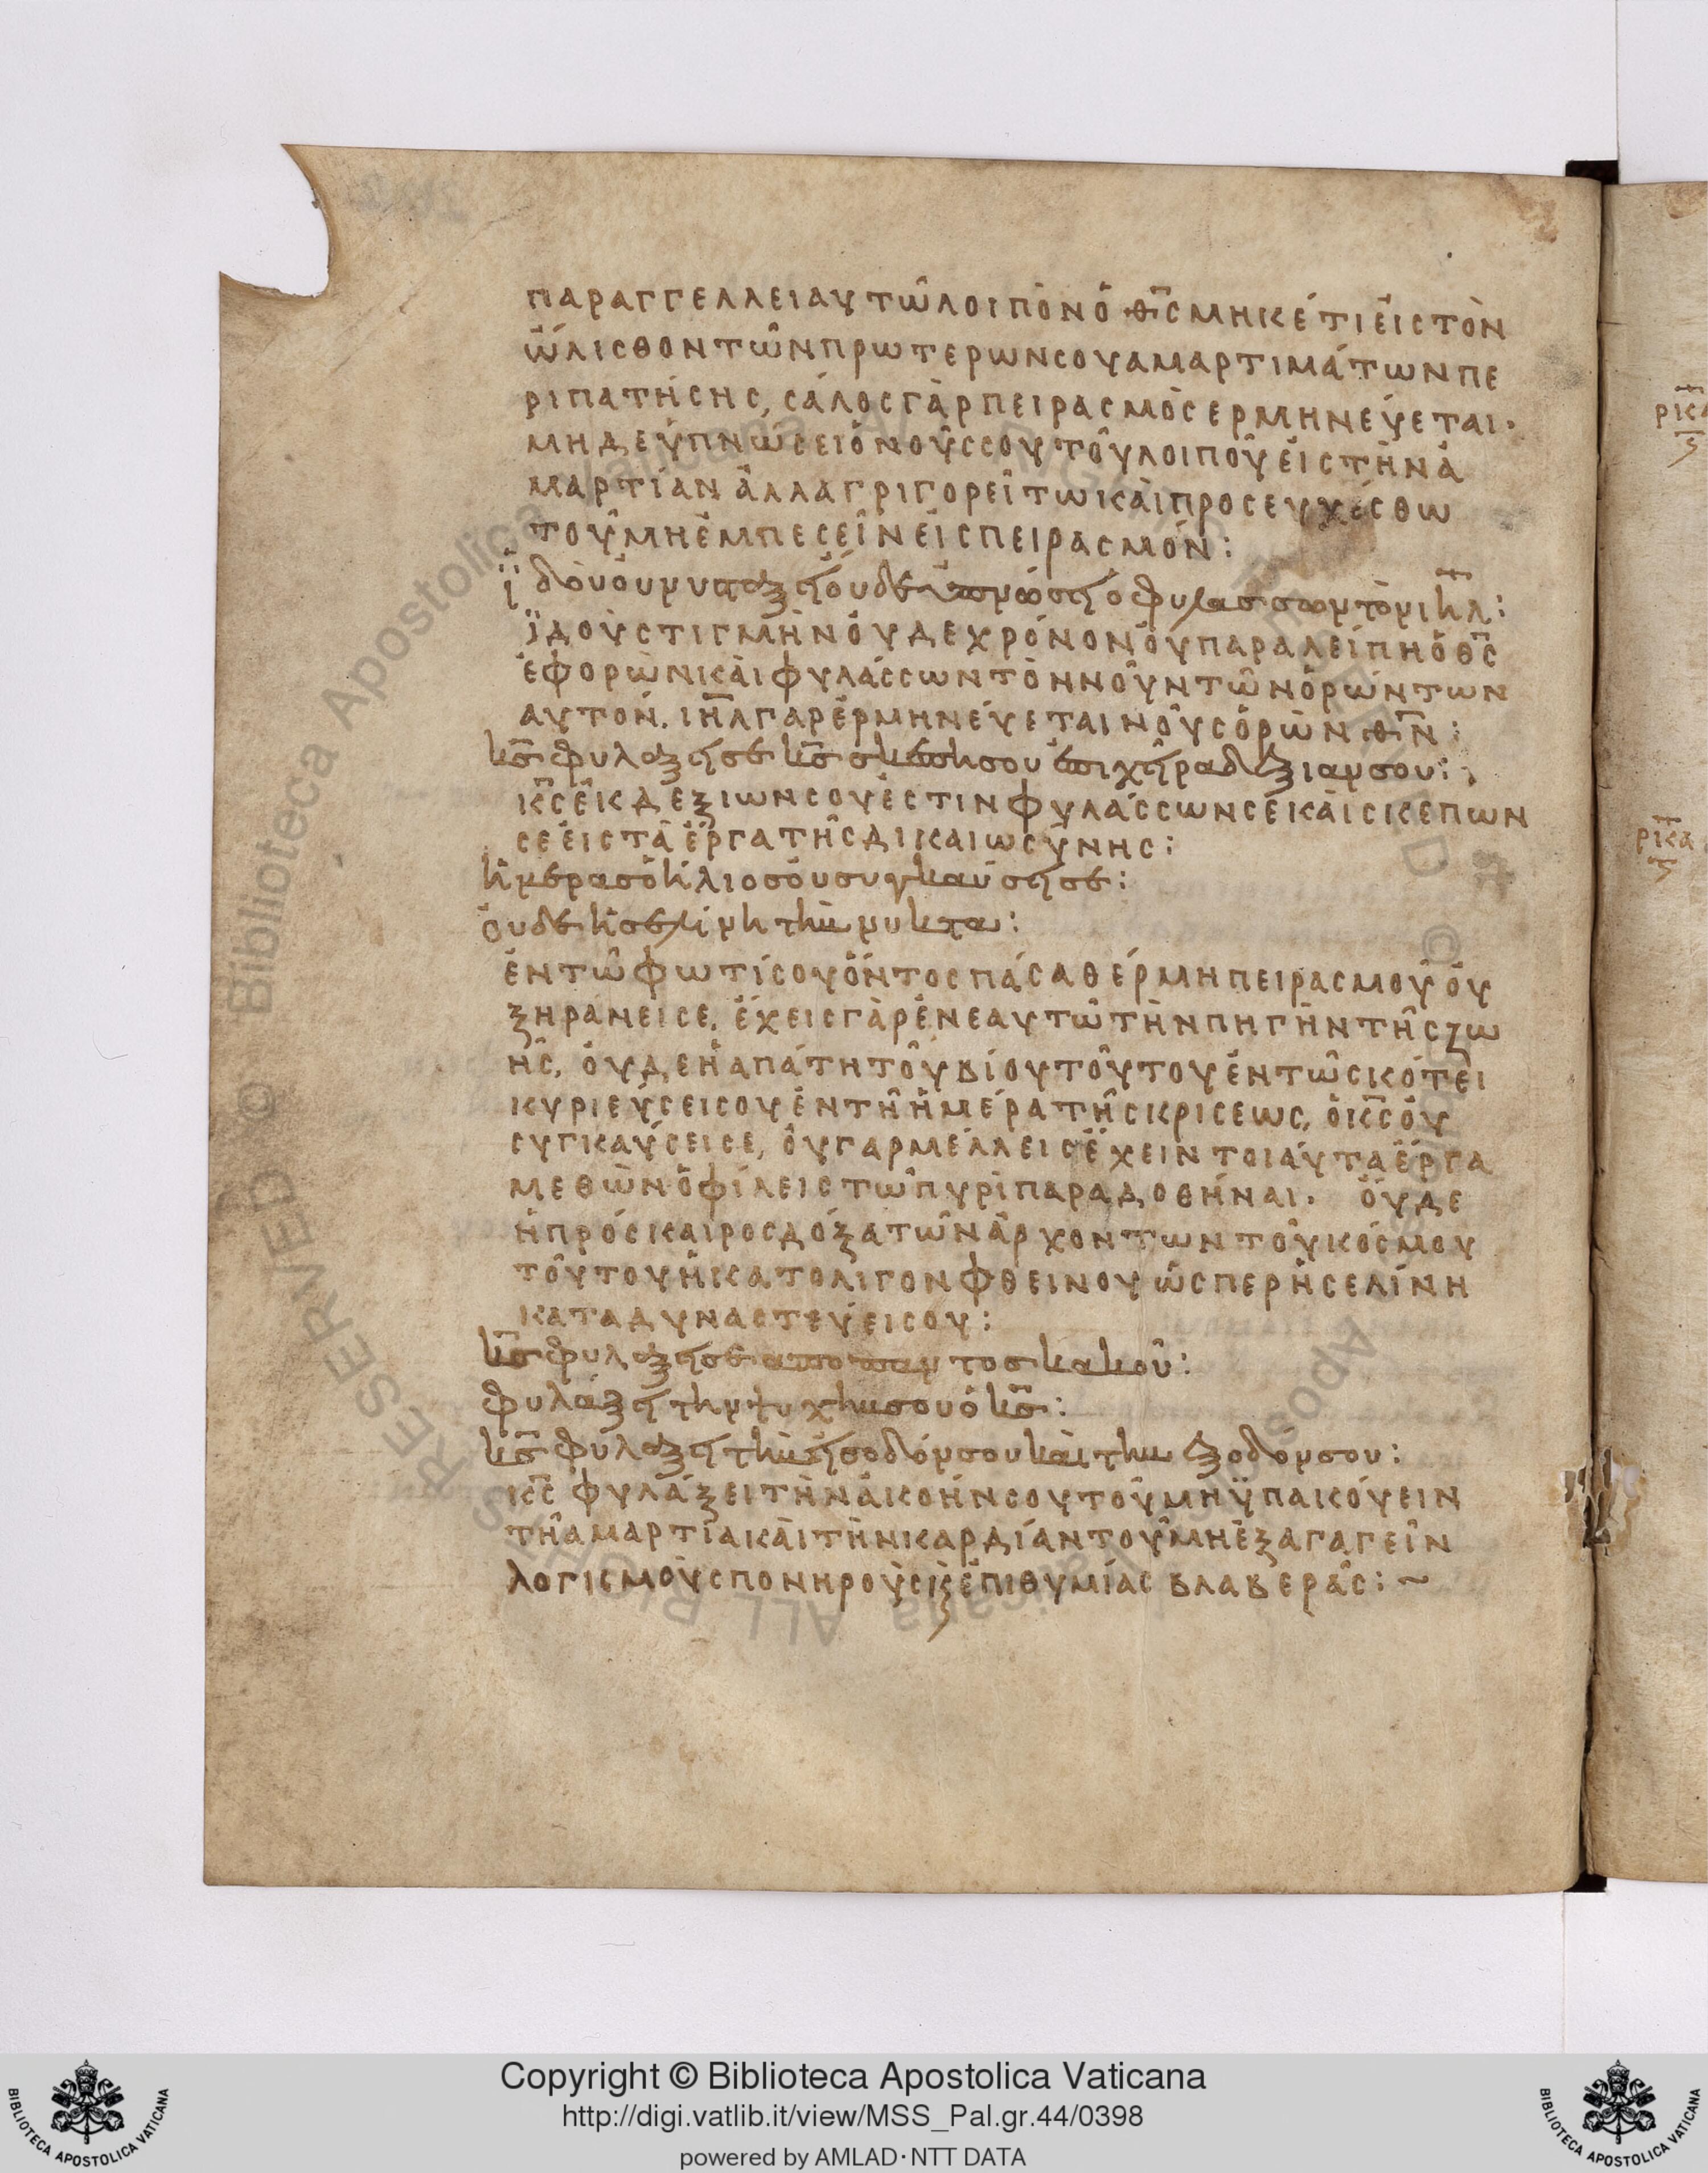 παραγγελλει αυτῶ λοιπὸν ὁ θ̅ς̅ μηκέτι εἰς τὸν
ὤλισθον τῶν πρωτερων σου αμαρτιμάτων πε
ριπατήσης, σάλος γὰρ πειρασμὸς ερμηνεύεται·
μηδε ὑπνώσει ὁ νοῦς σου τοῦ λοιποῦ εἰς τὴν ἁ
μαρτίαν ἀλλα γριγορείτω καὶ προσευχέσθω
τοῦ μὴ ἐμπεσεῖν εἰς πειρασμόν:
ϊδοὺ ὀυ νυσταξει ὀυδε ὑπνώσει ὁ φυλασσων τὸν ι̅η̅λ̅:
ϊδοὺ στιγμὴν ὀυδε χρόνον ὀυ παραλείπη ὁ θ̅ς̅
ἐφορὼν καὶ φυλάσσων τὸν νοῦν τῶν ὁρώντων
αυτόν. ι̅η̅λ̅ γαρ ἑρμηνεύεται νοῦς ὁρὼν θ̅ν̅:
κ̅ς̅ φυλαξει σε κ̅ς̅ σκεπη σου ἐπι χεῖρα δεξιαν σου:
κ̅ς̅ ἐκ δεξιων σου ἐστιν φυλάσσων σε καὶ σκεπων
σε εἰς τὰ ἔργα τῆς δικαιωσύνης:
ἡμερας ὁ ἥλιος ὀυ συγκαύσει σε:
ὀυδε ἡ σελίνη τὴν νυκτα:
ἐν τῶ φωτί σου ὄντος πάσα θέρμη πειρασμοῦ ὀυ
ξηρανει σε, ἔχεις γὰρ ἐν εαυτῶ τὴν πηγὴν τῆς ζω
ῆς, ὀυδε ἡ απάτη τοῦ βίου τοῦτου ἐν τῶ σκότει
κυριεύσει σου ἐν τῆ ἡμέρα τῆς κρισεως, ὁ κ̅ς̅ ὀυ
συγκαύσει σε, ὀυ γαρ μέλλεις ἔχειν τοιάυτα ἔργα
μεθ ὼν ὀφίλεις τῶ πυρὶ παραδοθήναι· ὀυδε
ἡ πρόσκαιρος δόξα τῶν ἀρχοντων τοῦ κόσμου
τοῦτου ἡ κατολιγον φθεινου ὥσπερ ἡ σελίνη
καταδυναστεύει σου:
κ̅ς̅ φυλαξει σε απο παντος κακοῦ:
φυλάξει την ψυχην σου ὁ κ̅ς̅:
κ̅ς̅ φυλαξει τὴν εἴσοδόν σου καὶ την εξοδόν σου:
κ̅ς̅ φυλάξει τὴν ἀκοήν σου τοῦ μὴ ϋπαικούειν
τῆ αμαρτία καὶ τὴν καρδίαν τοῦ μὴ ἐξαγαγεῖν
λογισμοὺς πονηροὺς κ̀ ἐπιθυμίας βλαβεράς: ~
Copyright © Biblioteca Apostolica Vaticana
http://digi.vatlib.it/view/MSS_Pal.gr.44/0398
powered by AMLAD·NTT DATA